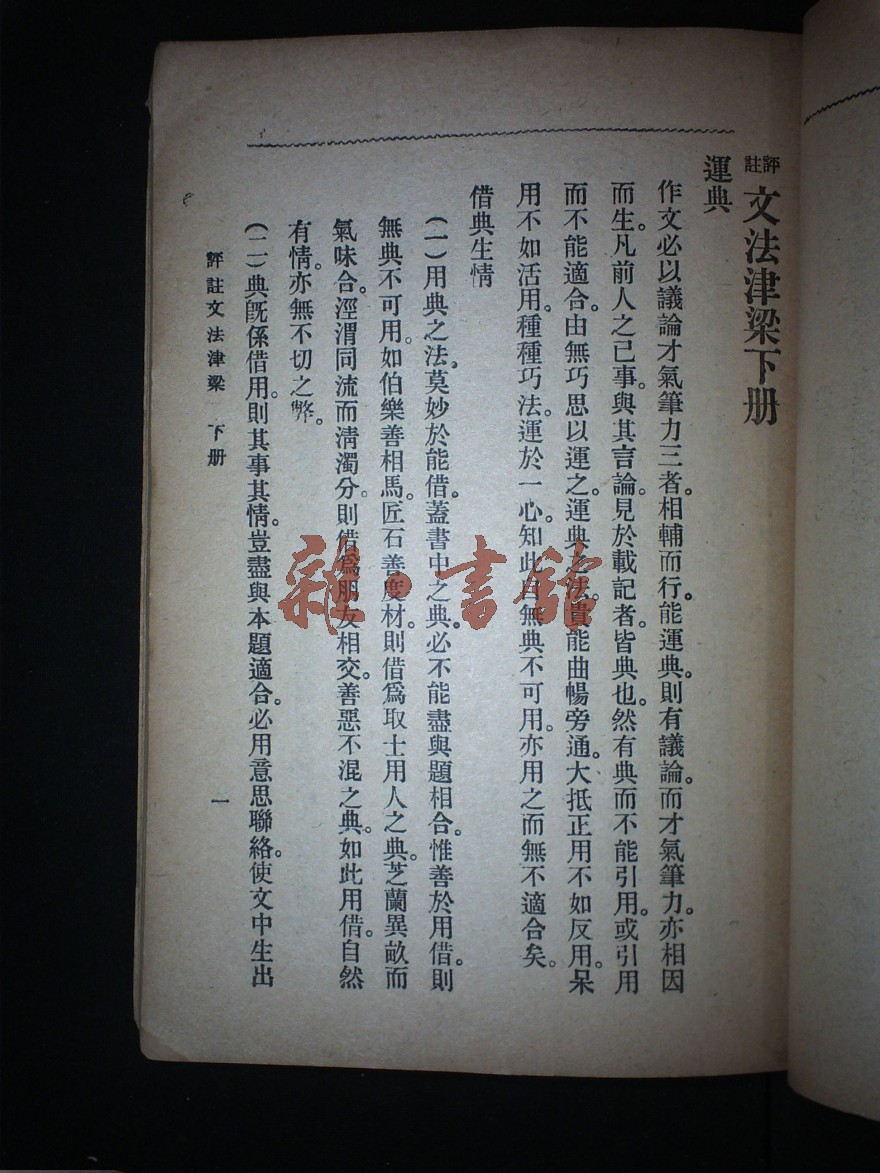 評註文法津梁下册
運典
作文必以議論才氣筆力三者。相輔而行。能運典。則有議論。而才氣筆力。亦相因
而生。凡前人之已事。與其言論。見於載記者。皆典也。然有典而不能引用。或引用
而不能適合。由無巧思以運之。運典之法。貴能曲暢旁通。大抵正用不如反用。呆
用不如活用。種種巧法。運於一心。知此自無典不可用。亦用之而無不適合矣。
借典生情
(一)用典之法。莫妙於能借。蓋書中之典。必不能盡與題相合。惟善於用借。則
無典不可用。如伯樂善相馬。匠石善度材。則借爲取士用人之典。芝蘭異畝而
氣味合。涇渭同流而淸濁分。則借爲朋友相交。善惡不混之典。如此用借。自然
有情。亦無不切之弊。
(二)典旣係借用。則其事其情。豈盡與本題適合。必用意思聯絡。使文中生出
評註文法津梁 下册 一
雜·書館